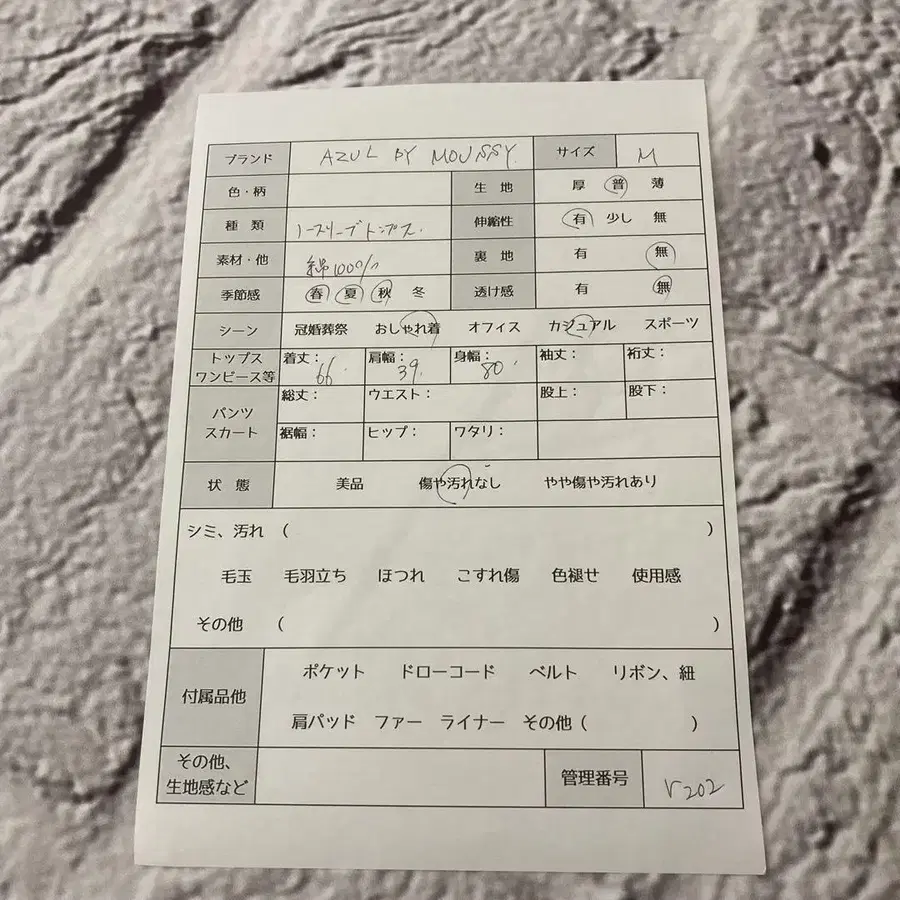 ブランド AZUL BY MOUSSY サイズ M
色・柄 生地 厚 普 薄
種類 ノースリーブトップス. 伸縮性 有 少し 無
素材・他 綿100% 裏地 有 無
季節感 春 夏 秋 冬 透け感 有 無
シーン 冠婚葬祭 おしゃれ着 オフィス カジュアル スポーツ
トップス ワンピース等 着丈： 66. 肩幅： 39. 身幅： 80. 袖丈： 裄丈：
パンツ スカート 総丈： ウエスト： 股上： 股下：
裾幅： ヒップ： ワタリ：
状態 美品 傷や汚れなし やや傷や汚れあり
シミ、汚れ ( )
毛玉 毛羽立ち ほつれ こすれ傷 色褪せ 使用感
その他 ( )
付属品他 ポケット ドローコード ベルト リボン、紐
肩パッド ファー ライナー その他 ( )
その他、
生地感など 管理番号 r202